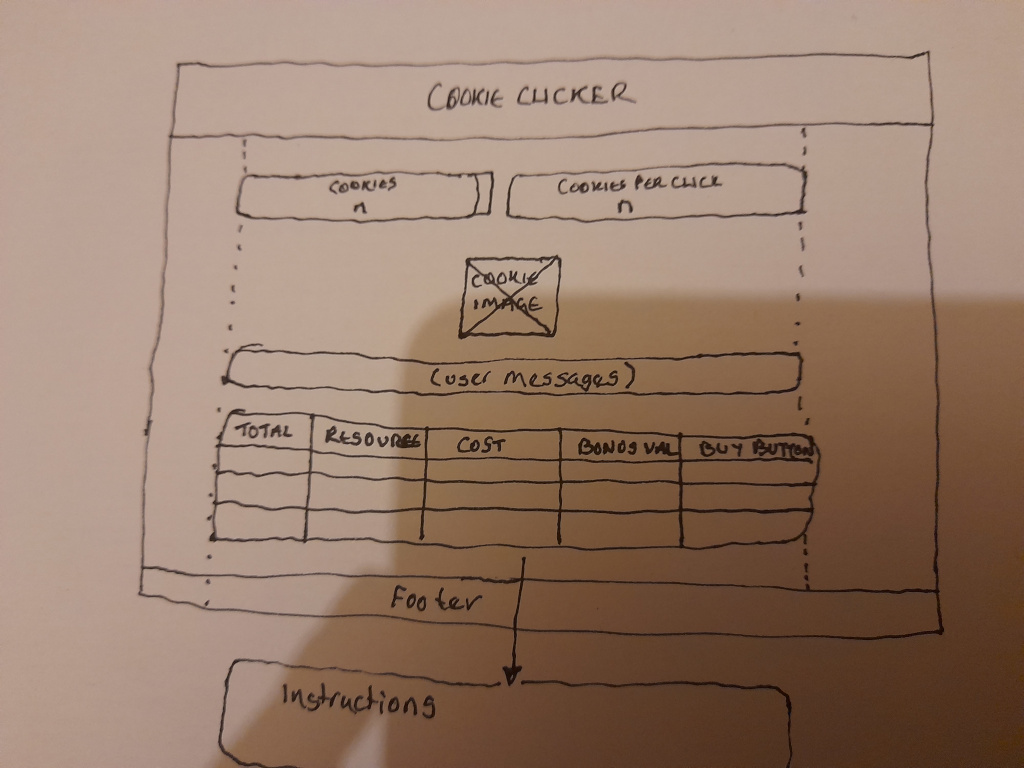 COOKIE CLICKER
COOKIES
n
COOKIES PER CLICK
n
COOKIE
IMAGE
(user messages)
TOTAL RESOURCE COST BONUS VAL BUY BUTTON
Footer
Instructions